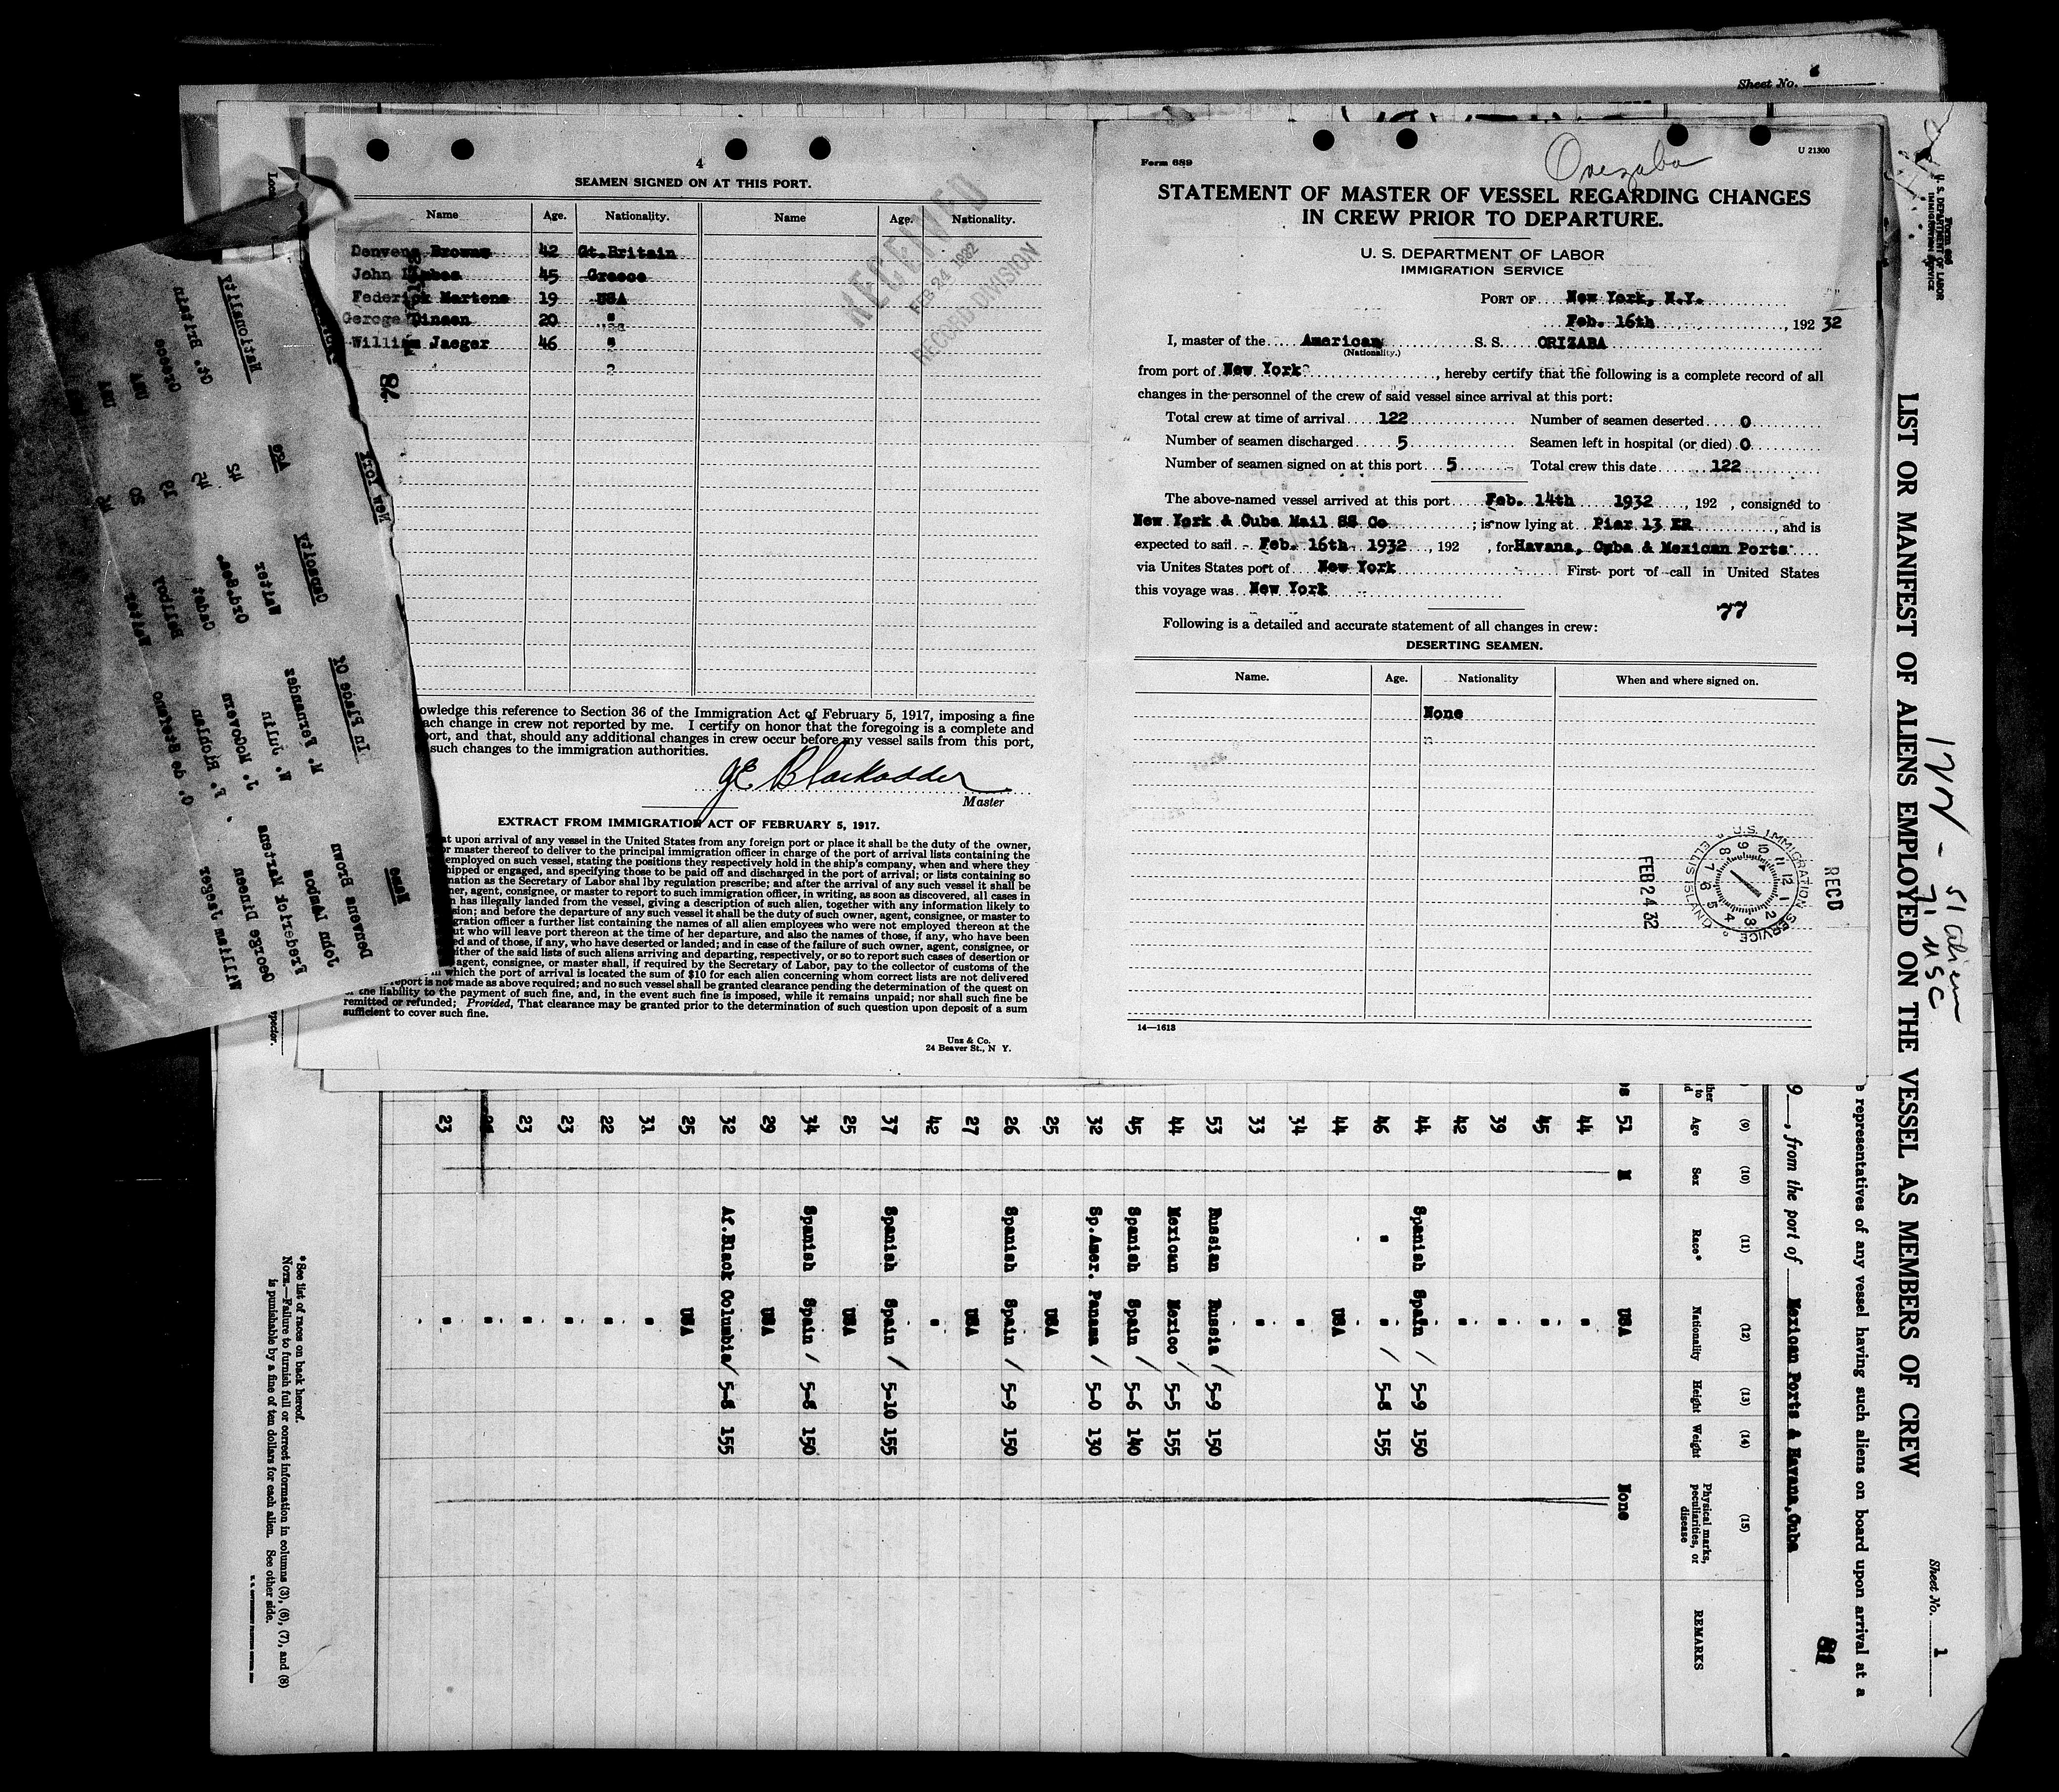 Sheet No.
4
SEAMEN SIGNED ON AT THIS PORT.
Name Age. Nationality. Name Age. Nationality.
Denvens Browns 42 Gt.Britain
John 45 Greece
Federick Martens 19 USA
Geroge Dinsen 20 "
William Jaeger 46 "
78
RECEIVED
FEB 24 1932
RECORD DIVISION
owledge this reference to Section 36 of the Immigration Act of February 5, 1917, imposing a fine
ach change in crew not reported by me. I certify on honor that the foregoing is a complete and
ort, and that, should any additional changes in crew occur before my vessel sails from this port,
such changes to the immigration authorities.
J E Blackadder
Master
EXTRACT FROM IMMIGRATION ACT OF FEBRUARY 5, 1917.
at upon arrival of any vessel in the United States from any foreign port or place it shall be the duty of the owner,
or master thereof to deliver to the principal immigration officer in charge of the port of arrival lists containing the
employed on such vessel, stating the positions they respectively hold in the ship's company, when and where they
hipped or engaged, and specifying those to be paid off and discharged in the port of arrival; or lists containing so
mation as the Secretary of Labor shal lby regulation prescribe; and after the arrival of any such vessel it shall be
ner, agent, consignee, or master to report to such immigration officer, in writing, as soon as discovered, all cases in
n has illegally landed from the vessel, giving a description of such alien, together with any information likely to
sion; and before the departure of any such vessel it shall be the duty of such owner, agent, consignee, or master to
igration officer a further list containing the names of all alien employees who were not employed thereon at the
ut who will leave port thereon at the time of her departure, and also the names of those, if any, who have been
ed and of those, if any, who have deserted or landed; and in case of the failure of such owner, agent, consignee, or
either of the said lists of such aliens arriving and departing, respectively, or so to report such cases of desertion or
agent, consignee, or master shall, if required by the Secretary of Labor, pay to the collector of customs of the
n which the port of arrival is located the sum of $10 for each alien concerning whom correct lists are not delivered
report is not made as above required; and no such vessel shall be granted clearance pending the determination of the quest on
of the liability to the payment of such fine, and, in the event such fine is imposed, while it remains unpaid; nor shall such fine be
remitted or refunded; Provided, That clearance may be granted prior to the determination of such question upon deposit of a sum
sufficient to cover such fine.
Unz & Co.
24 Beaver St., N Y.
Form 689
Orizaba
U 21300
STATEMENT OF MASTER OF VESSEL REGARDING CHANGES
IN CREW PRIOR TO DEPARTURE.
U. S. DEPARTMENT OF LABOR
IMMIGRATION SERVICE
PORT OF New York, N.Y.
Feb. 16th , 192 32
I, master of the American S. S. ORIZABA
(Nationality.)
from port of New York , hereby certify that the following is a complete record of all
changes in the personnel of the crew of said vessel since arrival at this port:
Total crew at time of arrival 122 Number of seamen deserted 0
Number of seamen discharged 5 Seamen left in hospital (or died) 0
Number of seamen signed on at this port 5 Total crew this date 122
The above-named vessel arrived at this port Feb. 14th 1932 , 192 , consigned to
New York & Cuba Mail SS Co ; is now lying at Piar 13 ER , and is
expected to sail Feb. 16th 1932 , 192 , for Havana, Cuba & Mexican Ports
via Unites States port of New York First port of call in United States
this voyage was New York
77
Following is a detailed and accurate statement of all changes in crew:
DESERTING SEAMEN.
Name. Age. Nationality When and where signed on.
None
U.S. IMMIGRATION SERVICE ELLIS ISLAND
REC'D
FEB 24 32
14—1613
Name Capacity In Place Of Age Nationality
Denvens Brown Waiter M. Fernandez 42 Gt. Britain
John Ord.Sea. W. Juin 45 Greece
Frederick Martens Cadet J. McGovern 19 USA
George Dinsen Bellboy 20 USA
William Jaeger Waiter C. de Stefano
New York
U. S. DEPARTMENT OF LABOR
IMMIGRATION SERVICE
LIST OR MANIFEST OF ALIENS EMPLOYED ON THE VESSEL AS MEMBERS OF CREW
51 alien
71 USC
Sheet No. 1
e representatives of any vessel having such aliens on board upon arrival at a
9 , from the port of Mexican Ports & Havana,Cuba
81
(9) (10) (11) (12) (13) (14) (15)
Age Sex Race* Nationality Height Weight Physical marks, peculiarities, or disease REMARKS
51 M USA None
44 "
45 "
39 "
42 "
44 Spanish Spain / 5-9 150
46 " " / 5-8 155
44 USA
34 "
33 "
53 Russian Russia / 5-9 150
44 Mexican Mexico / 5-5 155
45 Spanish Spain / 5-6 140
32 Sp.Amer. Panama / 5-0 130
25 USA
26 Spanish Spain / 5-9 150
27 USA
42 "
37 Spanish Spain / 5-10 155
25 USA
34 Spanish Spain / 5-8 150
29 USA
32 Af.Black Columbia/ 5-8 155
25 USA
31 "
22 "
23 "
23 "
"
23 "
*See list of races on back hereof.
NOTE.—Failure to furnish full or correct information in columns (3), (6), (7), and (8)
is punishable by a fine of ten dollars for each alien. See other side.